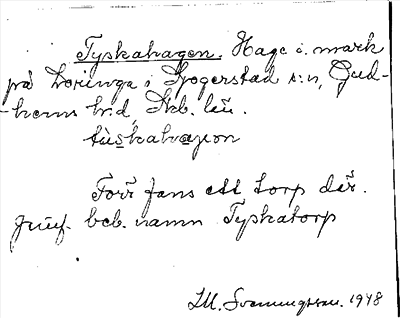 Tyskahagen. Hage i mark
på Loringa i Segerstad s:n, Gud-
-hems hrd, Skb. län.
Förr fans ett torp där.
Jmf. beb. namn Tyskatorp
M. Svenningsson. 1948